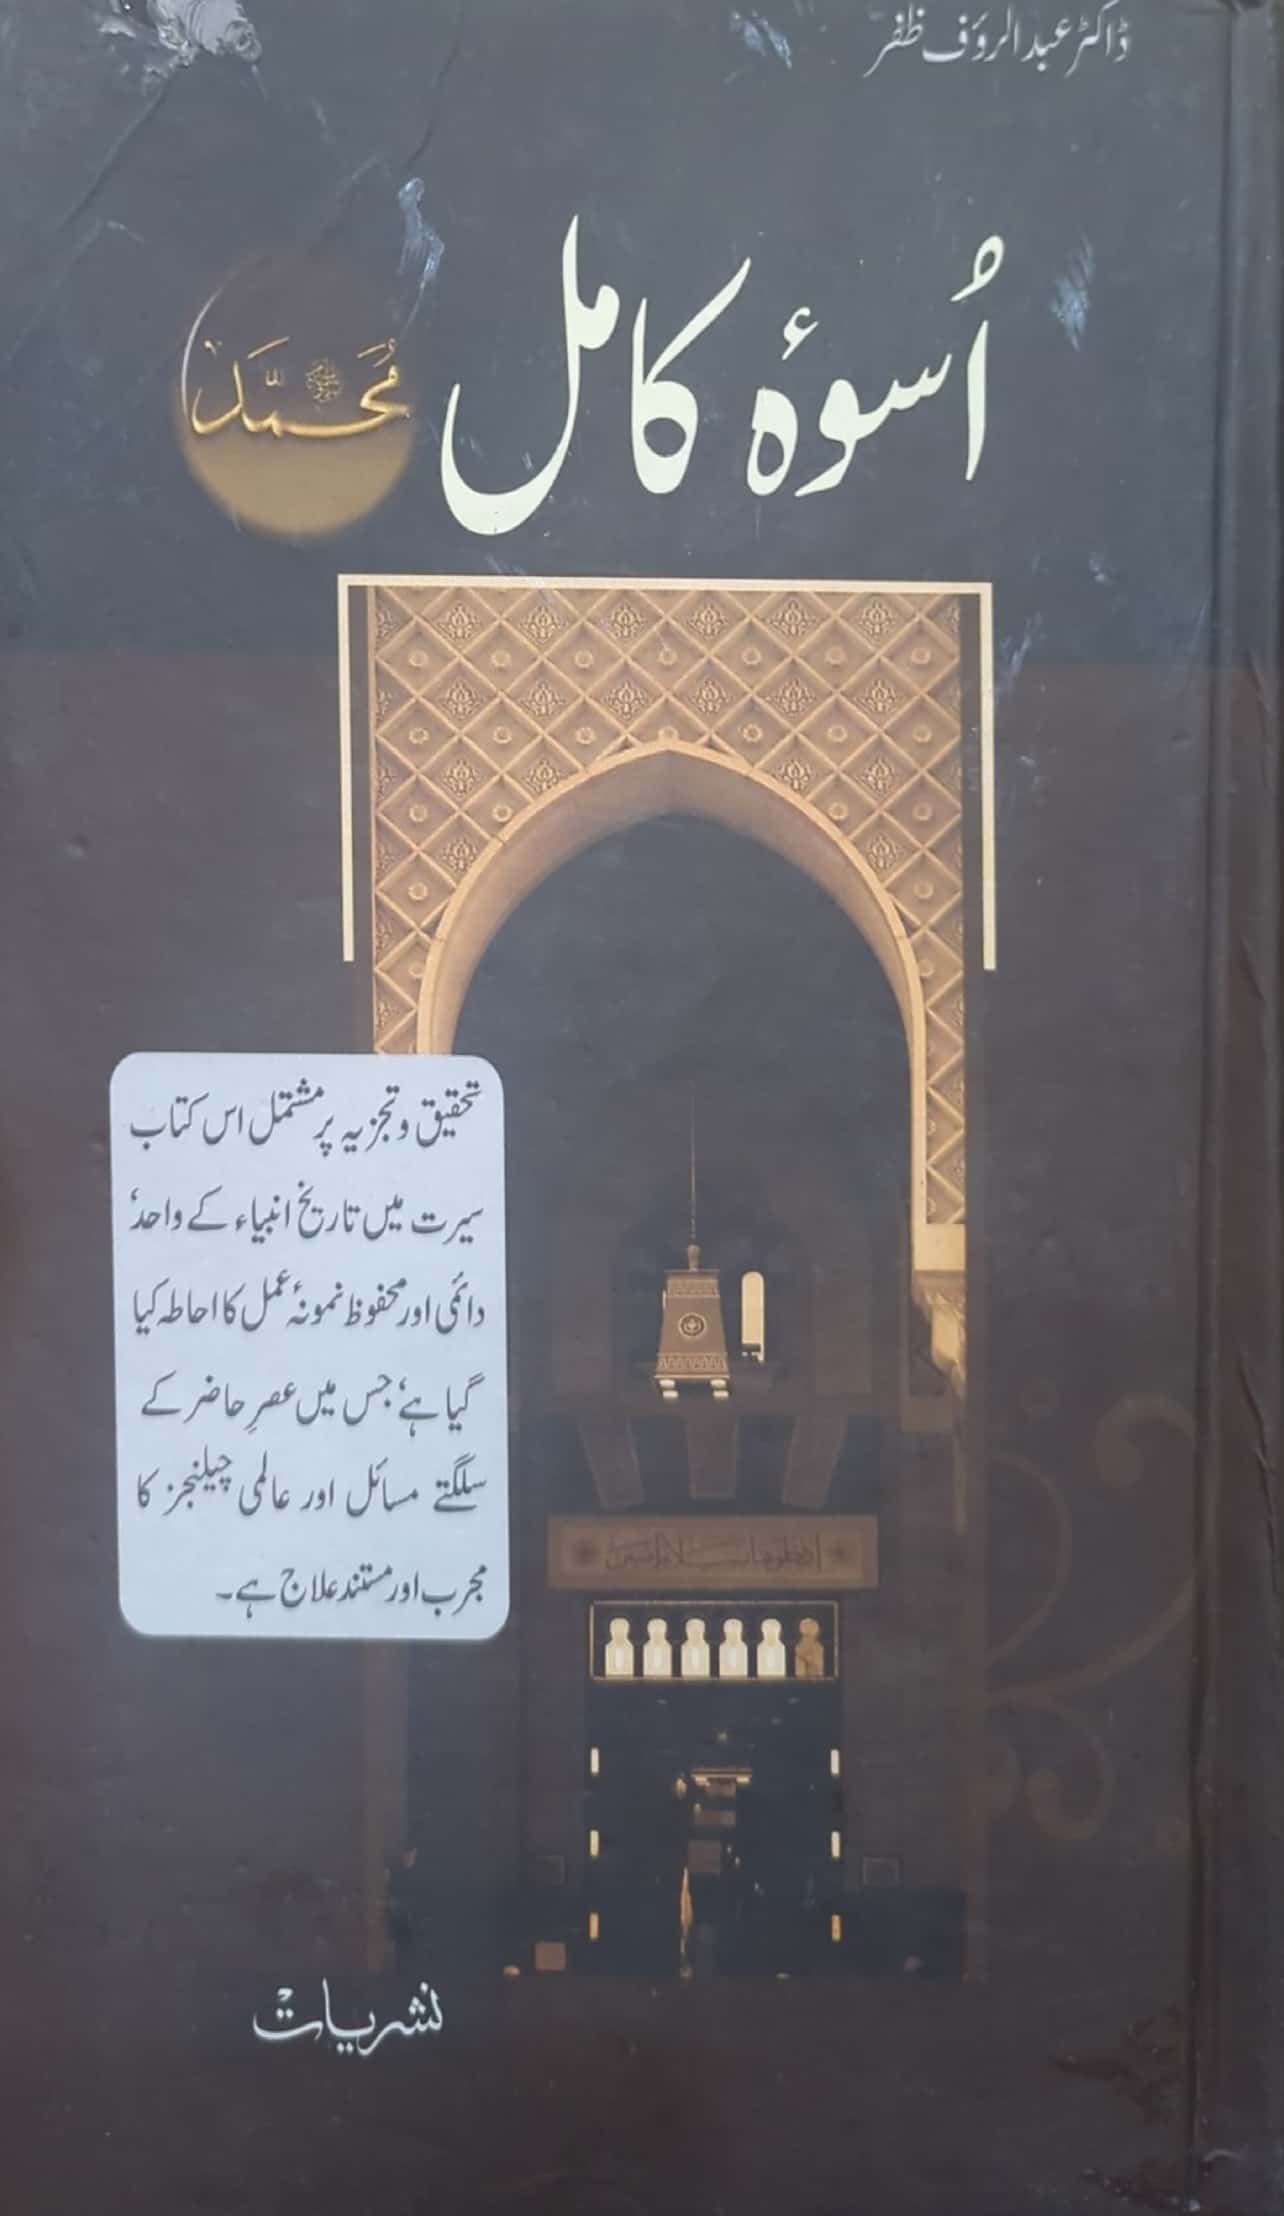 ڈاکٹر عبدالرؤف ظفر
اُسوۂ کامل
مُحَمَّد ﷺ
تحقیق و تجزیہ پر مشتمل اس کتاب
سیرت میں تاریخ انبیاء کے واحد،
دائمی اور محفوظ نمونۂ عمل کا احاطہ کیا
گیا ہے، جس میں عصرِ حاضر کے
سلگتے مسائل اور عالمی چیلنجز کا
مجرب اور مستند علاج ہے۔
نشریات